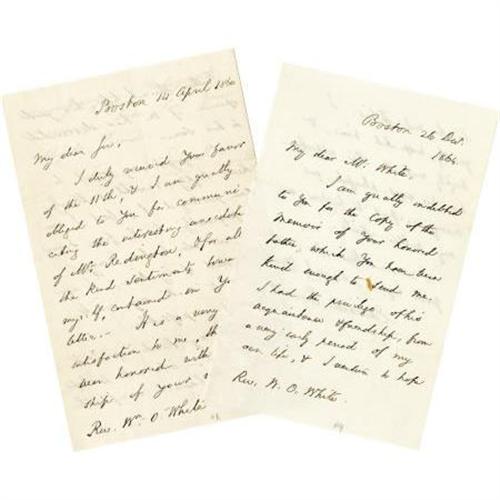 Boston 14 April 186
My dear Sir,
I duly received Your favor
of the 11th, & I am greatly
obliged to You for communi
cating the interesting anecdote
of Mr. Redington, & for all
the kind sentiments towar
mys: lf, contained in Yo
letter. — It is a very
satisfaction to me, th
been honored with
ship of your
Rev. Wm. O White
Boston 26 Dec.
186
My dear Mr. White,
I am greatly indebted
to You for the Copy of the
Memoir of Your honored
father, which You have been
kind enough to send me.
I had the privilege of his
acquaintance & friendship, from
a very early period of my
own life, & I venture to hope
Rev. W. O. White.